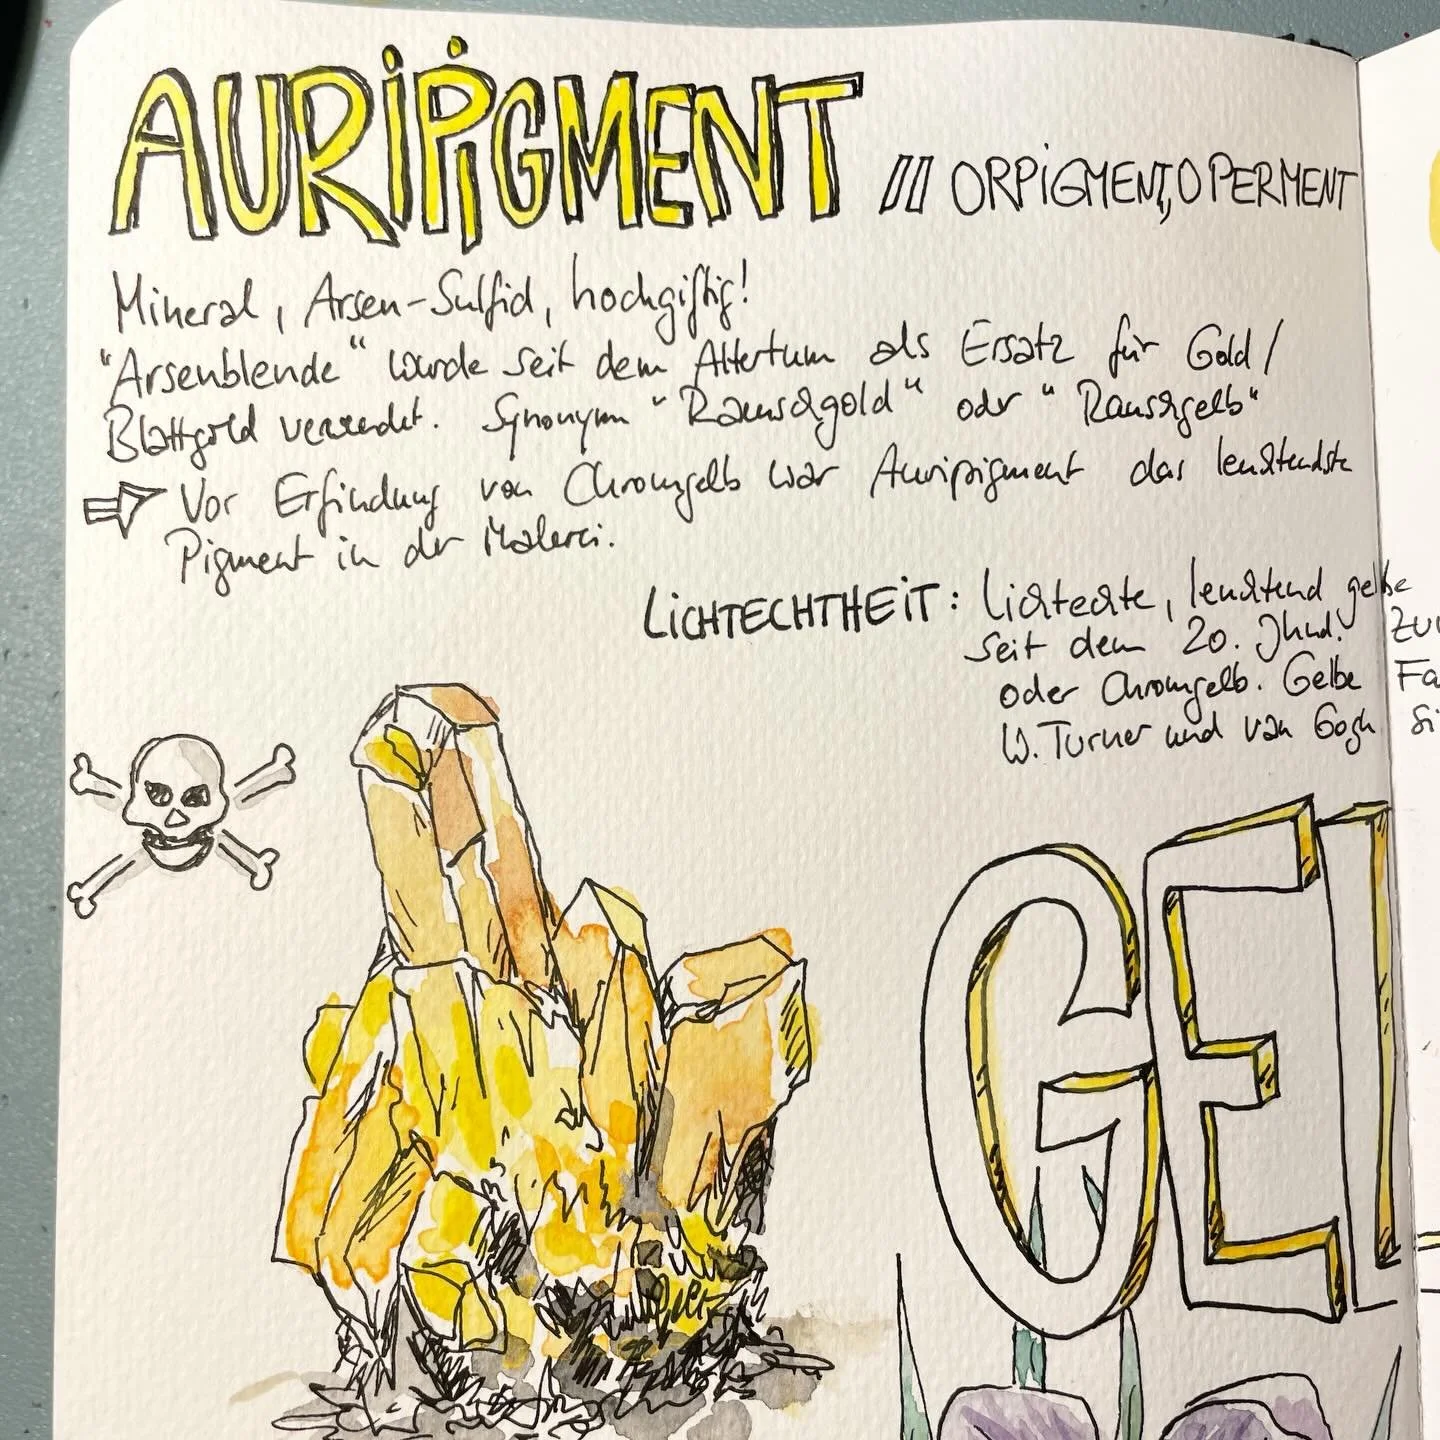 AURIPIGMENT // ORPIGMENT, OPERMENT
Mineral, Arsen-Sulfid, hochgiftig!
"Arsenblende" wurde seit dem Altertum als Ersatz für Gold/
Blattgold verwendet. Synonym "Rauschgold" oder "Rauschgelb"
Vor Erfindung von Chromgelb war Auripigment das leuchtendste
Pigment in der Malerei.
LICHTECHTHEIT: Lichtechte, leuchtend gelbe
seit dem 20. Jhnd.
oder Chromgelb. Gelbe Fa
W. Turner und van Gogh si
GEL